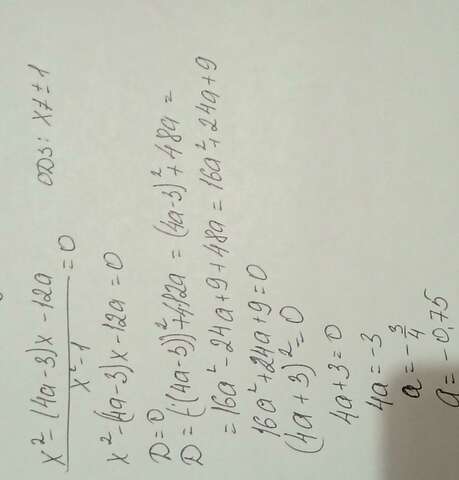 x² - (4a-3)x - 12a / x² - 1 = 0   ОДЗ: x ≠ ± 1
x² - (4a-3)x - 12a = 0
D = 0
D = (-(4a-3))² + 4·12a = (4a-3)² + 48a =
= 16a² - 24a + 9 + 48a = 16a² + 24a + 9
16a² + 24a + 9 = 0
(4a + 3)² = 0
4a + 3 = 0
4a = -3
a = -3/4
a = -0,75